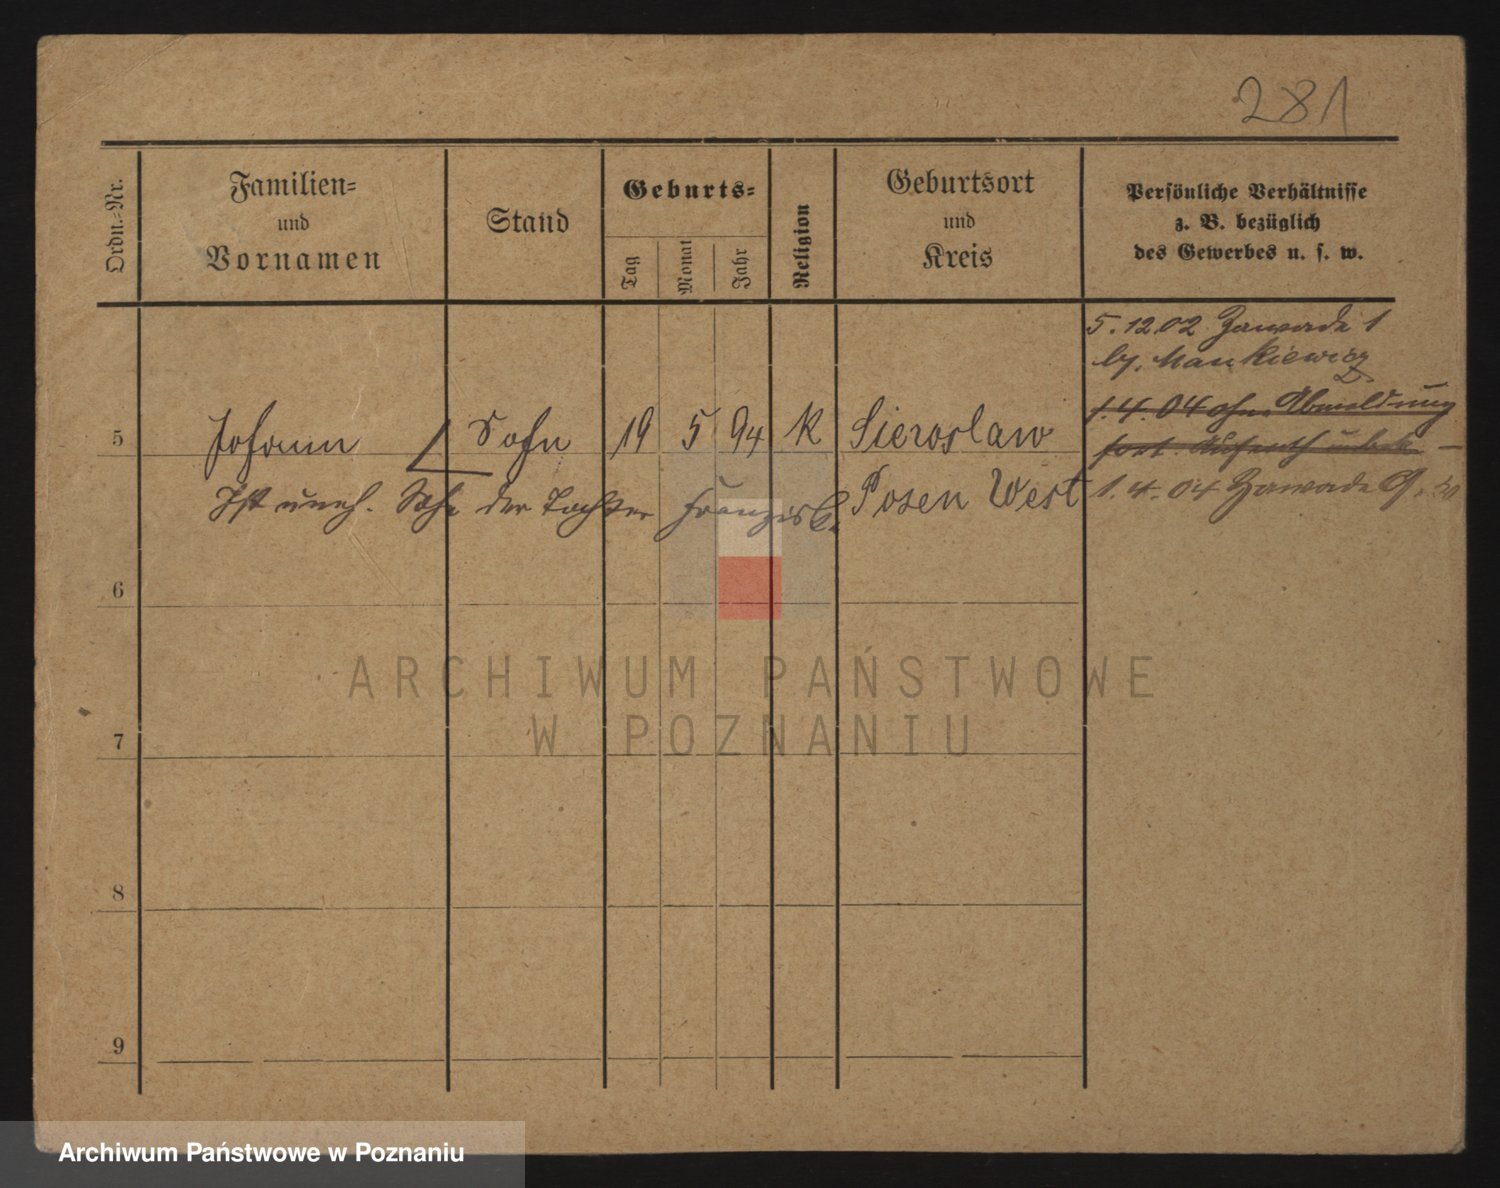 281
Ordn.-Nr.
Familien-
und
Vornamen
Stand
Geburts-
Tag
Monat
Jahr
Religion
Geburtsort
und
Kreis
Persönliche Verhältnisse
z. B. bezüglich
des Gewerbes u. s. w.
5.12.02 Zawade 1
by. Mankiewicz
1.4.04 ohne Abmeldung
fort. Aufenth unbek
1.4.04 Zawade
5
Johann
Sohn
19
5
94
K
Sieroslaw
Posen West
Ist uneh. Sohn der Tochter Franziska
6
7
8
9
ARCHIWUM PAŃSTWOWE
W POZNANIU
Archiwum Państwowe w Poznaniu